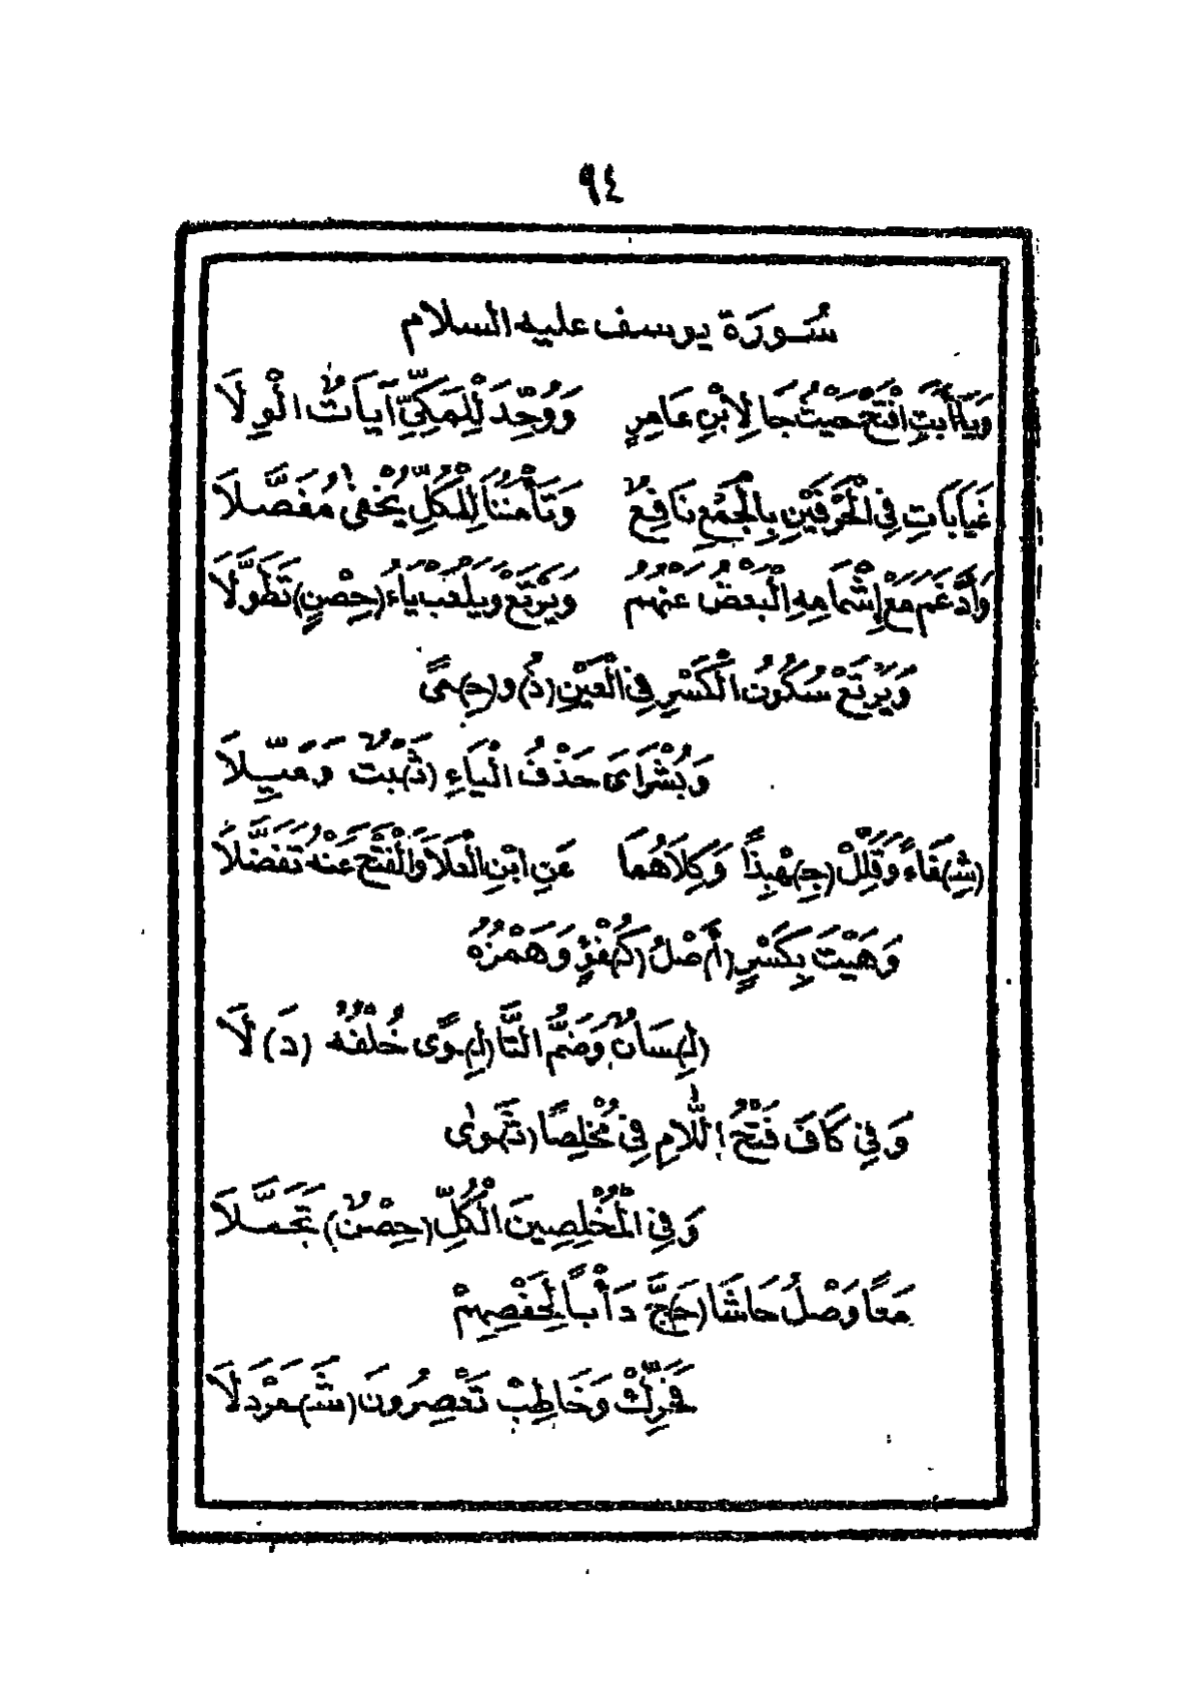 ٩٤
سُورَة يوسف عليه السلام
وَيَا أَبَتِ افْتَحْ حَيْثُ جَا لِابْنِ عَامِرٍ وَوُحِّدَ لِلْمَكِّيِّ آيَاتٌ الْوِلَا
غَيَابَاتِ فِي الْحَرْفَيْنِ بِالْجَمْعِ نَافِعٌ وَتَأْمَنُنَا لِلْكُلِّ يُخْفَى مُفَصَّلَا
وَأَدْغَمَ مَعْ إِشْمَامِهِ الْبَعْضُ عَنْهُمُ وَيَرْتَعْ وَيَلْعَبْ يَاءُ (حِصْنٍ) تَطَوَّلَا
وَيَرْتَعْ سُكُونُ الْكَسْرِ فِي الْعَيْنِ (ذُ) و (حِ) ـمًى
وَبُشْرَايَ حَذْفُ الْيَاءِ (ثَـ) ـبْتٌ وَمَيِّلَا
(شِـ) ـفَاءً وَقَلِّلْ (جِـ) ـهْبِذًا وَكِلَاهُمَا عَنِ ابْنِ الْعَلَا وَالْفَتْحُ عَنْهُ تَفَضَّلَا
وَهَيْتَ بِكَسْرٍ (أَ) صْلُ (كُـ) ـفْؤٍ وَهَمْزُهُ
(لِـ) ـسَانٌ وَضَمُّ التَّا (لِـ) ـوًى خُلْفُهُ (دَ) لَا
وَفِي كَافَ فَتْحُ اللَّامِ فِي مُخْلِصًا (ثَـ) ـوَى
وَفِي الْمُخْلِصِينَ الْكُلِّ (حِصْنٌ) تَجَمَّلَا
مَعًا وَصْلُ حَاشَا (حَـ) ـجَّ دَأْبًا لِحَفْصِهِمْ
فَحَرِّكْ وَخَاطِبْ تَعْصِرُونَ (شَـ) ـمَرْدَلَا